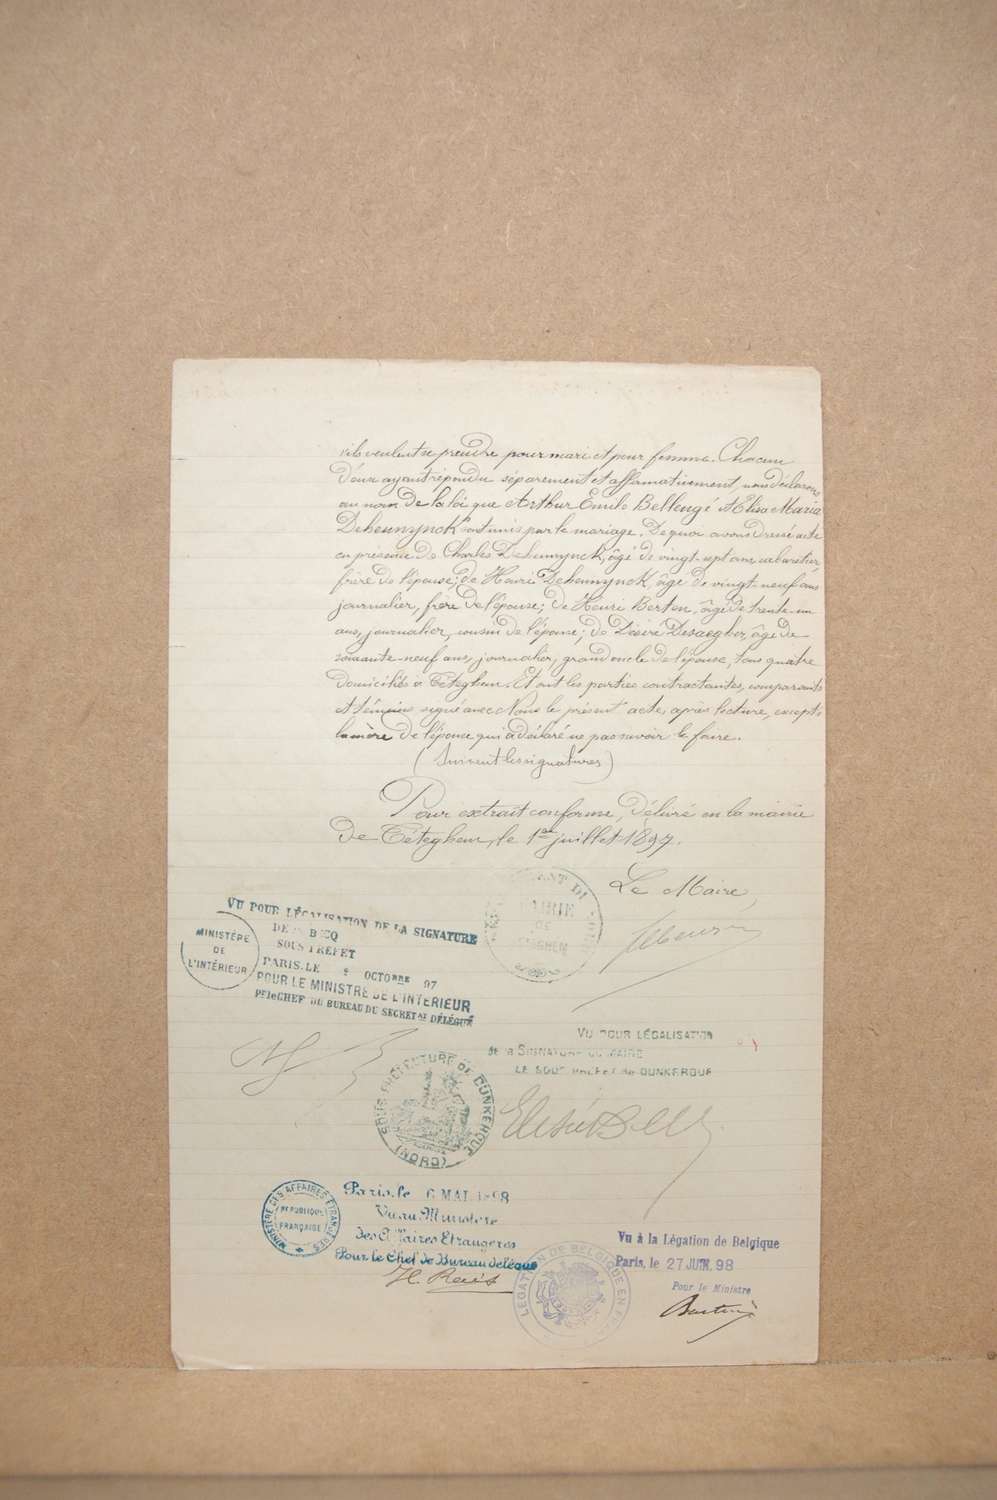 s'ils veulent se prendre pour mari et pour femme. Chacun
d'eux ayant répondu séparément et affirmativement, nous déclarons
au nom de la loi que Arthur Emile Bellengé et Elisa Maria
Dehunynck sont unis par le mariage. De quoi avons dressé acte
en présence de Charles Dehunynck, âgé de vingt-sept ans, cabaretier,
frère de l'épouse; de Henri Dehunynck, âgé de vingt-neuf ans
journalier, frère de l'épouse; de Henri Berten, âgé de trente-un
ans, journalier, cousin de l'épouse; de Désiré Desaegher, âgé de
soixante-neuf ans, journalier, grand oncle de l'épouse, tous quatre
domiciliés à Téteghem. Et ont les parties contractantes, comparants
et témoins signé avec Nous le présent acte, après lecture, excepté
la mère de l'épouse qui a déclaré ne pas savoir le faire.
(Suivent les signatures)
Pour extrait conforme, délivré en la mairie
de Téteghem, le 1er juillet 1897.
Le Maire,
MAIRIE
DE
VU POUR LÉGALISATION DE LA SIGNATURE
SOUS PRÉFET
PARIS, LE OCTOBRE 97
POUR LE MINISTRE DE L'INTERIEUR
CHEF DU BUREAU DU SECRET.AT DÉLÉGUÉ
MINISTÈRE
DE
L'INTÉRIEUR
VU POUR LÉGALISATION
de la SIGNATURE DU MAIRE
LE SOUS PREFET de DUNKERQUE
SOUS PRÉFECTURE DE DUNKERQUE
(NORD)
MINISTÈRE DES AFFAIRES ÉTRANGÈRES
RÉPUBLIQUE
FRANÇAISE
Paris, le 6 MAI 1898
Vu au Ministère
des Affaires Etrangères
Pour le Chef de Bureau délégué
LÉGATION DE BELGIQUE EN
Vu à la Légation de Belgique
Paris, le 27 JUIN. 98
Pour le Ministre